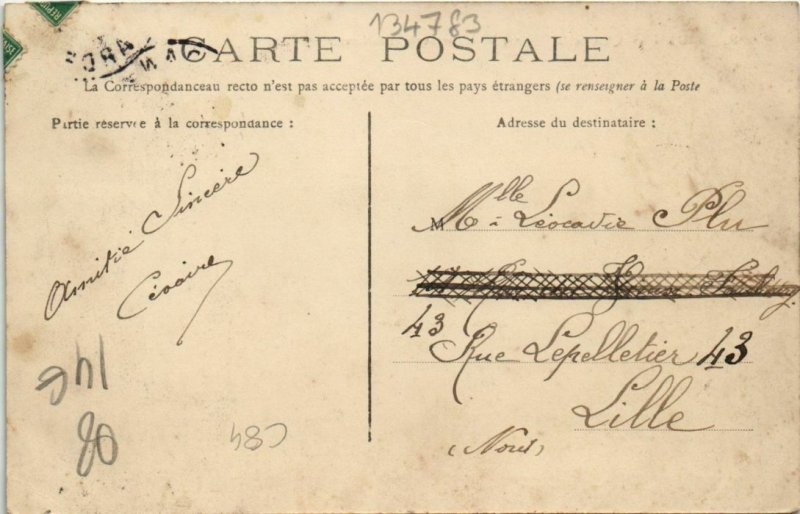 134783
CARTE POSTALE
La Correspondanceau recto n'est pas acceptée par tous les pays étrangers (se renseigner à la Poste
Partie réservée à la correspondance :
Amitié Sincère
Césaire
146
80
C84
Adresse du destinataire :
Mlle Léocadie Plu
43
Rue Lepelletier 43
Lille
(Nord)